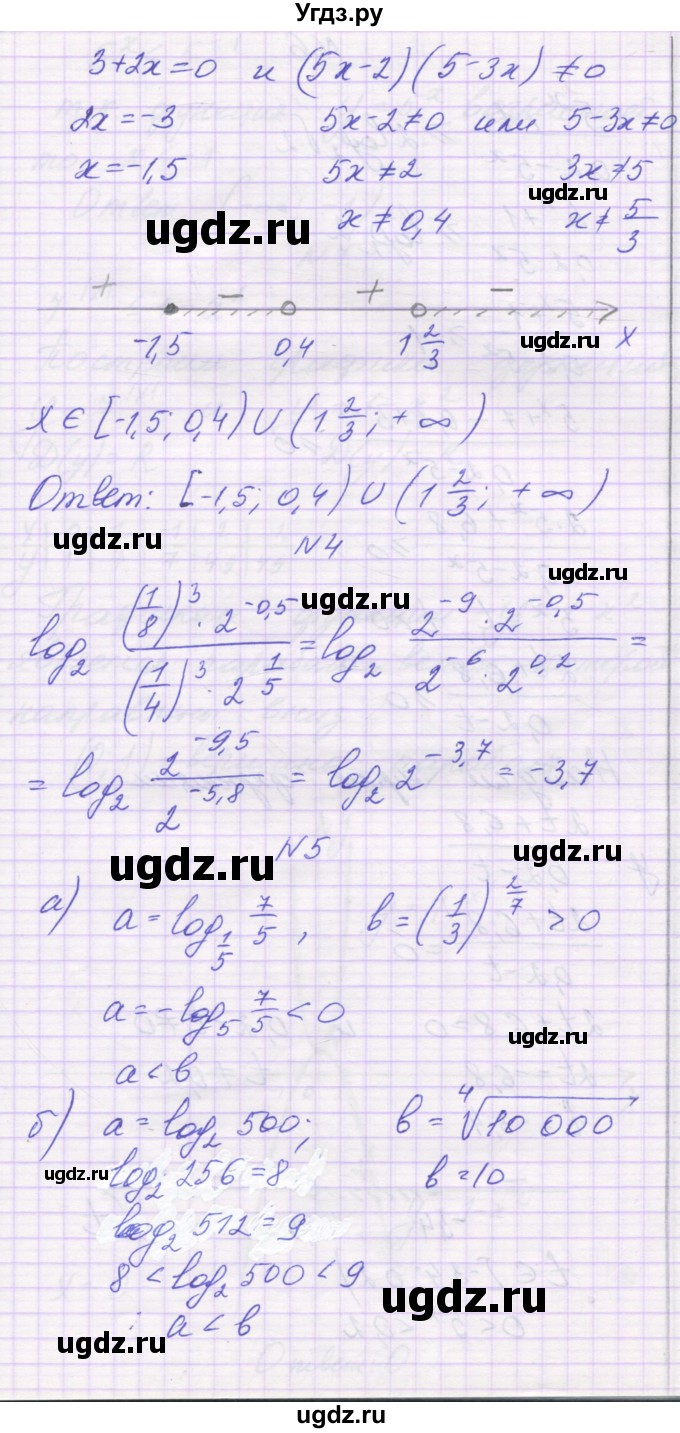 Угдз.ру
3+2x=0 и (5x-2)(5-3x)≠0
2x=-3 5x-2≠0 или 5-3x≠0
x=-1,5 5x≠2 3x≠5
ugdz.ru
ugdz.ru x≠0,4 x≠5/3
+ - + -
-1,5 0,4 1 2/3 ugdz.ru x
x∈[-1,5; 0,4)∪(1 2/3; +∞)
Ответ: [-1,5; 0,4)∪(1 2/3; +∞)
ugdz.ru N4 ugdz.ru
ugdz.ru
log₂ ((1/8)³·2^(-0,5))/((1/4)³·2^(1/5)) = log₂ (2^(-9)·2^(-0,5))/(2^(-6)·2^(0,2)) =
= log₂ 2^(-9,5)/2^(-5,8) = log₂ 2^(-3,7) = -3,7
ugdz.ru N5 ugdz.ru
а) a=log_(1/5) 7/5, b=(1/3)^(2/7) > 0
a=-log₅ 7/5 < 0
ugdz.ru
a<b
б) a=log₂ 500; b=⁴√10 000
ugdz.ru log₂ 256=8 b=10
log₂ 512=9
8<log₂ 500<9
ugdz.ru
ugdz.ru a<b
Ответ
ugdz.ru